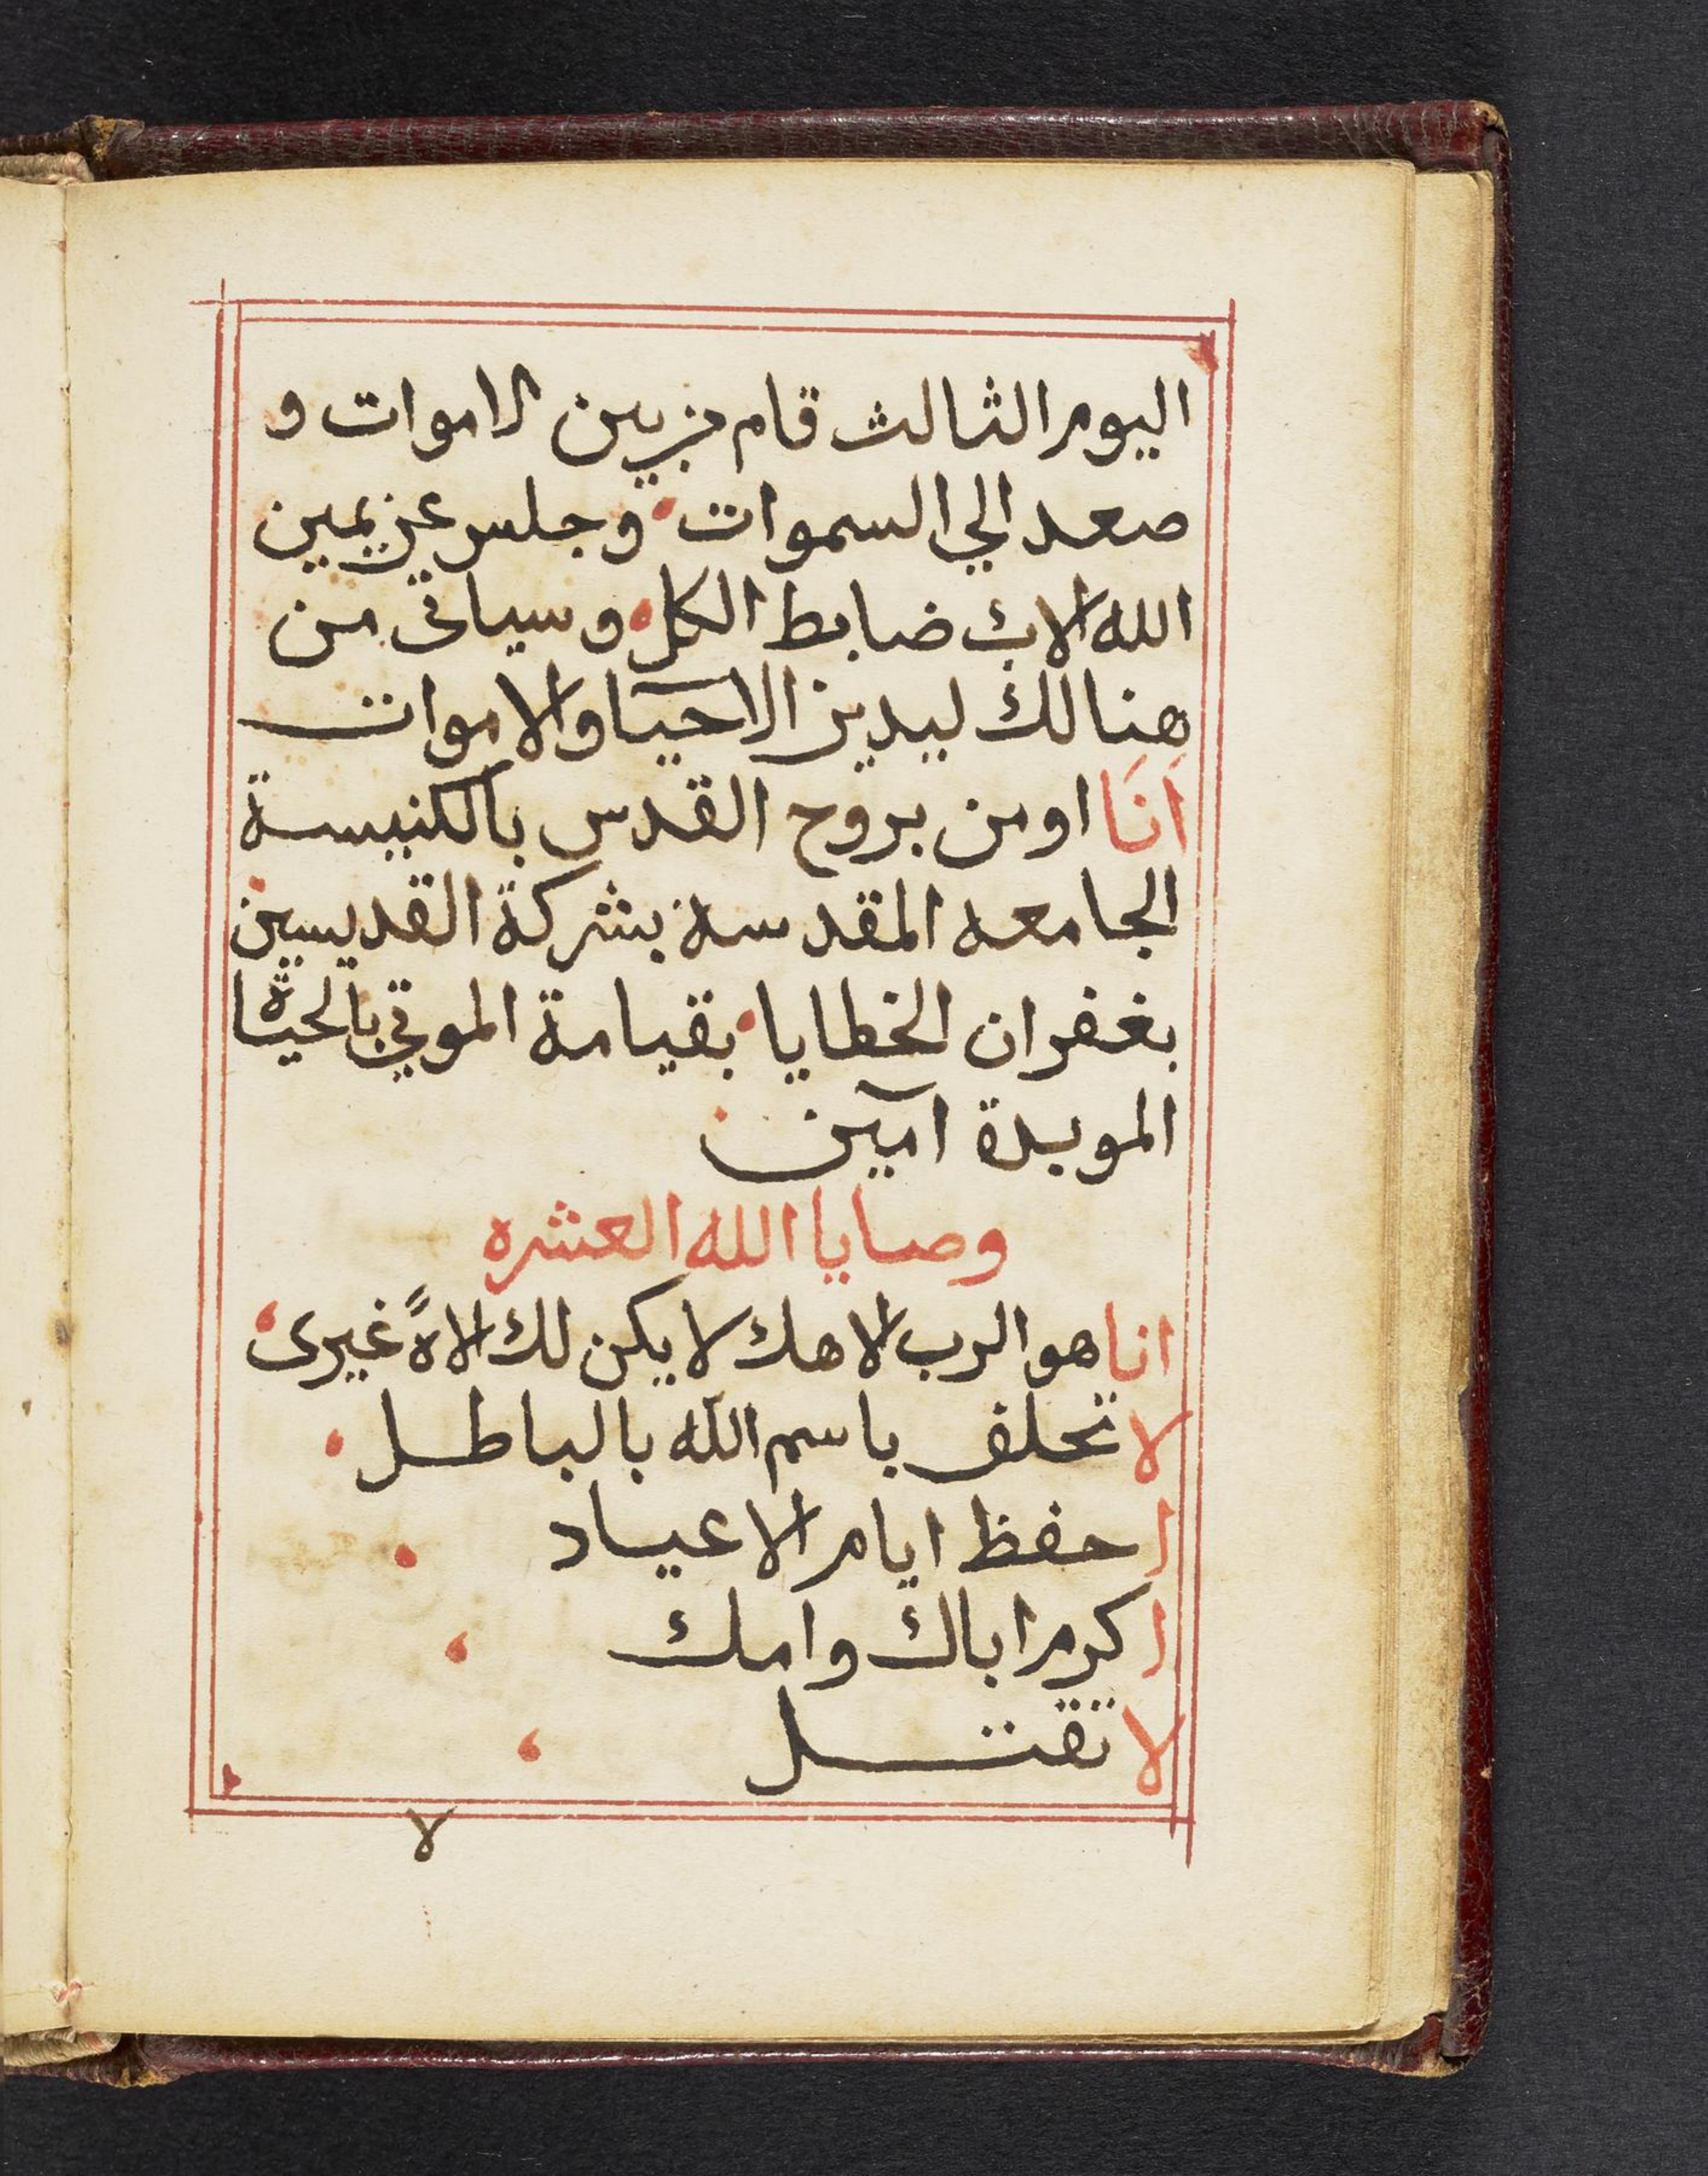 اليوم الثالث قام من بين الاموات و
صعد الي السموات وجلس عن يمين
الله الاب ضابط الكل وسياتي من
هنالك ليدين الاحيا والاموات
اَنَا اومن بروح القدس بالكنيسة
الجامعه المقدسة بشركة القديسين
بغفران الخطايا بقيامة الموتي بالحياة
الموبدة آمين
وصايا الله العشره
انا هو الرب الاهك لا يكن لك الاهً غيرى
لا تحلف باسم الله بالباطل
احفظ ايام الاعياد
اكرم اباك وامك
لا تقتل
لا